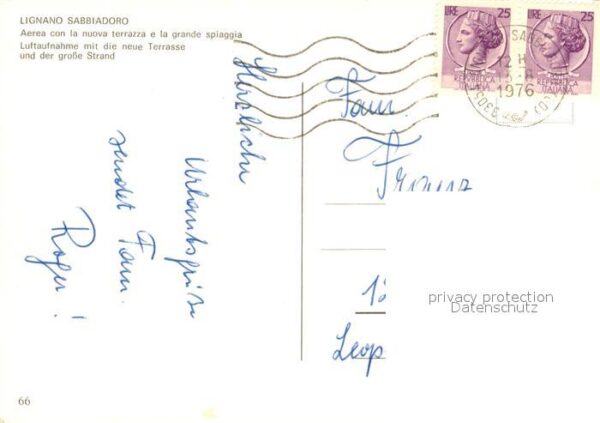 LIGNANO SABBIADORO
Aerea con la nuova terrazza e la grande spiaggia
Luftaufnahme mit die neue Terrasse
und der große Strand
LIRE 25
REPUBBLICA
ITALIANA
LIRE 25
REPUBBLICA
ITALIANA
12
1976
Herzliche
Urlaubsgrüße
sendet Fam.
Fam.
Franz
1
Leop
privacy protection
Datenschutz
66